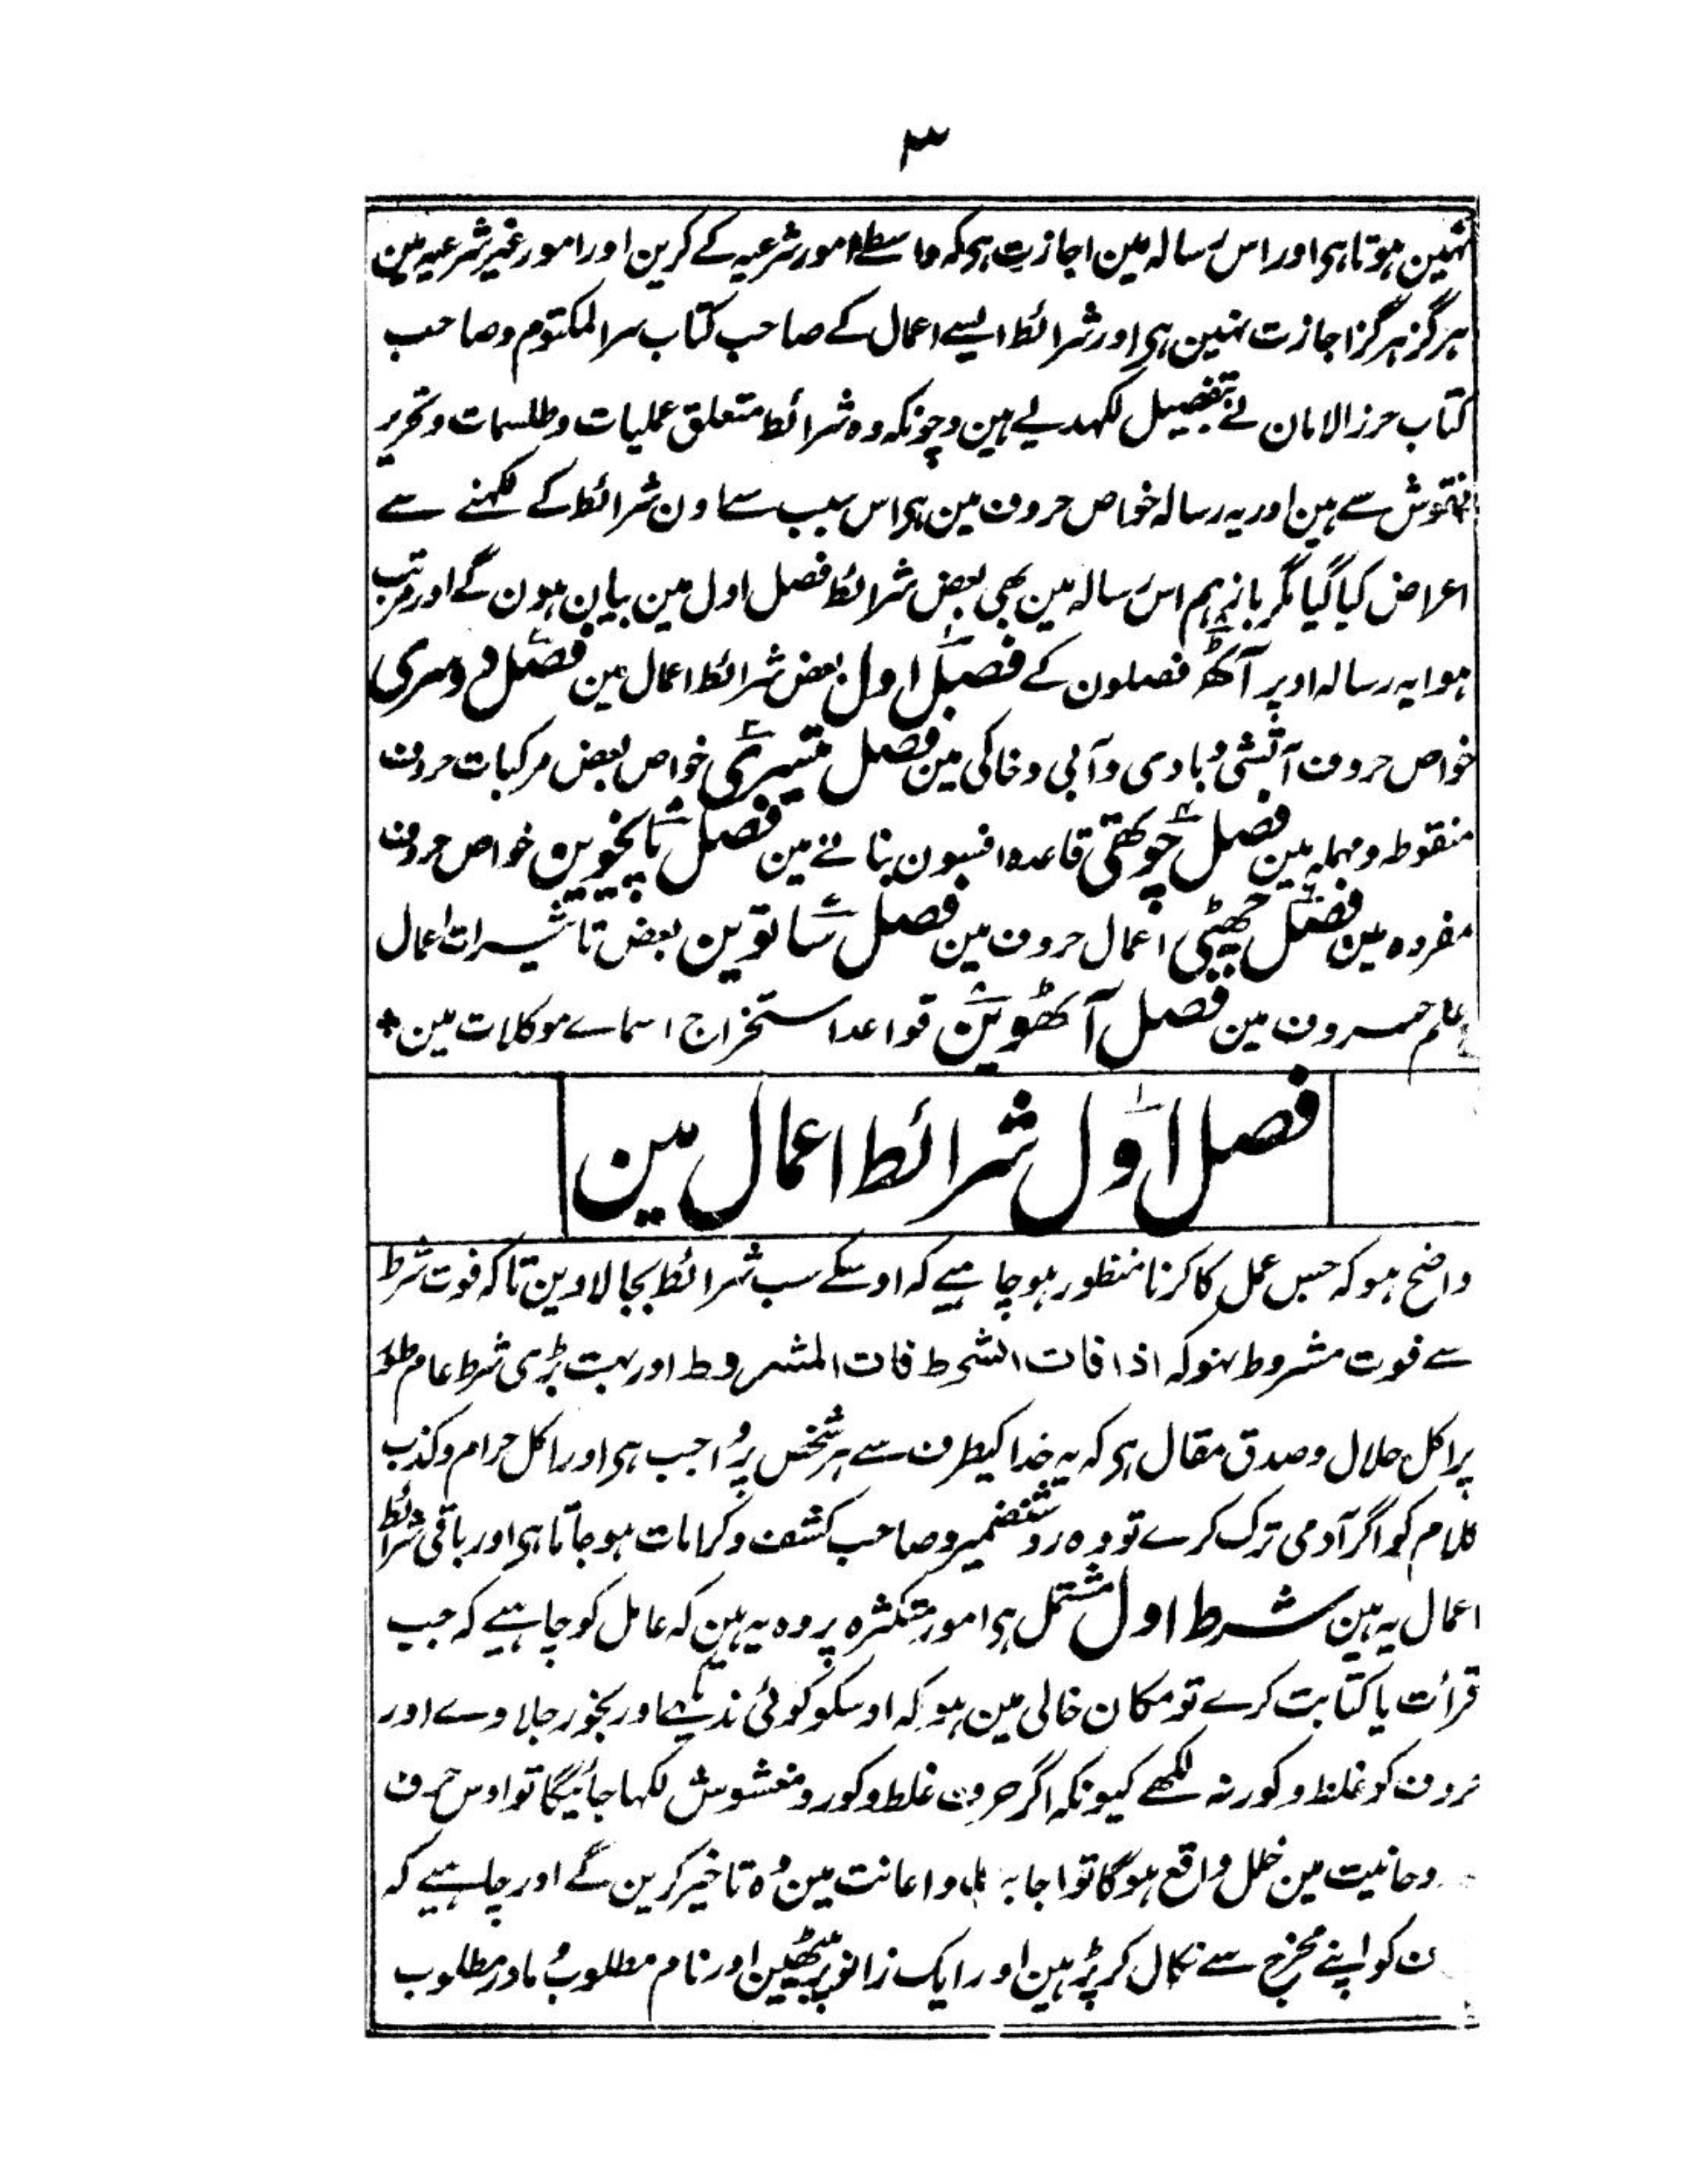 ۳
نہین ہوتا ہی اور اس رسالہ مین اجازت ہی کہ واسطے امور شرعیہ کے کرین اور امور غیر شرعیہ مین
ہرگز ہرگز اجازت نہین ہی اور شرائط ایسے اعمال کے صاحب کتاب سر المکتوم و صاحب
کتاب حرز الامان نے بتفصیل لکھدیے ہین و چونکہ وہ شرائط متعلق عملیات و طلسمات و تحریر
نقوش سے ہین اور یہ رسالہ خواص حروف مین ہی اس سبب سے اون شرائط کے لکھنے سے
اعراض کیا گیا مگر باز ہم اس رسالہ مین بھی بعض شرائط فصل اول مین بیان ہون گے اور مرتب
ہوا یہ رسالہ اوپر آٹھ فصلون کے فصل اول بعض شرائط اعمال مین فصل دوسری
خواص حروف آتشی و بادی و آبی و خاکی مین فصل تیسری خواص بعض مرکبات حروف
منقوطہ و مہملہ مین فصل چوتھی قاعدہ افسون بنانے مین فصل پانچوین خواص حروف
مفردہ مین فصل چھٹی اعمال حروف مین فصل ساتوین بعض تاثیرات اعمال
علم حروف مین فصل آٹھوین قواعد استخراج اسماے موکلات مین +
فصل اوّل شرائط اعمال مین
واضح ہو کہ جس عمل کا کرنا منظور ہو چاہیے کہ اوسکے سب شرائط بجا لاوین تاکہ فوت شرط
سے فوت مشروط نہو کہ اذا فات الشرط فات المشروط اور بہت بڑی شرط عام طور
پر اکل حلال و صدق مقال ہی کہ یہ خدا کیطرف سے ہر شخص پر واجب ہی اور اکل حرام و کذب
کلام کو اگر آدمی ترک کرے تو وہ روشنضمیر و صاحب کشف و کرامات ہو جاتا ہی اور باقی شرائط
اعمال یہ ہین شرط اول مشتمل ہی امور متکثرہ پر وہ یہ ہین کہ عامل کو چاہیے کہ جب
قرأت یا کتابت کرے تو مکان خالی مین ہو کہ اوسکو کوئی ندیکھے اور بخور جلاوے اور
حروف کو غلط و کور نہ لکھے کیونکہ اگر حروف غلط و کور و مغشوش لکھا جائیگا تو اوس حرف
وحانیت مین خلل واقع ہوگا تو اجابہ و اعانت مین وہ تاخیر کرین گے اور چاہیے کہ
ن کو اپنے مخرج سے نکال کر پڑہین اور ایک زانو بیٹھین اور نام مطلوب و مادر مطلوب